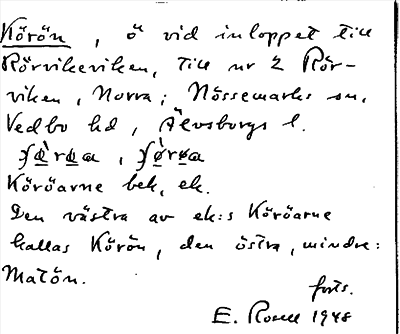 Körön, ö vid inloppet till
Rörvikeviken, till nr 2 Rör-
viken, Norra; Nössemarks sn,
Vedbo hd, Älvsborgs l.
Köröarne bek, ek.
Den västra av ek:s Köröarne
kallas Körön, den östra, mindre:
Matön.
forts.
E. Rosell 1948